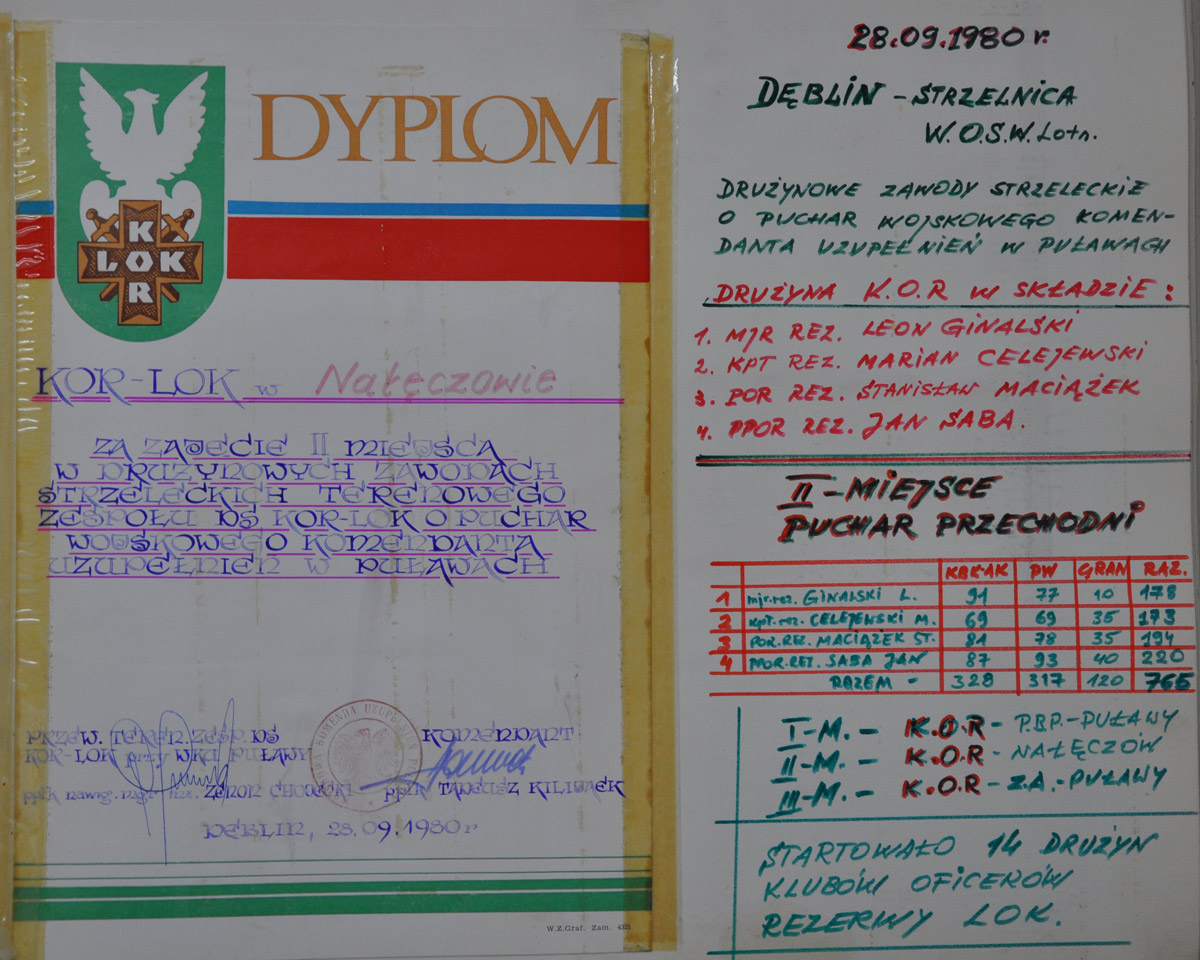 DYPLOM
K
LOK
R
KOR-LOK w Nałęczowie
ZA ZAJĘCIE II MIEJSCA
W DRUŻYNOWYCH ZAWODACH
STRZELECKICH TERENOWEGO
ZESPOŁU DS KOR-LOK O PUCHAR
WOJSKOWEGO KOMENDANTA
UZUPEŁNIEŃ W PUŁAWACH
PRZEW. TEREN. ZESP. DS
KOR-LOK przy WKU PUŁAWY
ppłk nawig. ZENON
KOMENDANT
ppłk TADEUSZ
KOMENDA UZUPEŁNIEŃ
DĘBLIN, 28.09.1980 r
W.Z.Graf. Zam.
28.09.1980 r.
DĘBLIN - STRZELNICA
W.O.S.W. Lotn.
DRUŻYNOWE ZAWODY STRZELECKIE
O PUCHAR WOJSKOWEGO KOMEN-
DANTA UZUPEŁNIEŃ W PUŁAWACH
DRUŻYNA K.O.R W SKŁADZIE:
1. MJR REZ. LEON GINALSKI
2. KPT REZ. MARIAN CELEJEWSKI
3. POR REZ. STANISŁAW MACIĄŻEK
4. PPOR REZ. JAN SABA.
II-MIEJSCE
PUCHAR PRZECHODNI
KBK-AK PW GRAN RAZ.
1 mjr.rez. GINALSKI L. 91 77 10 178
2 kpt.rez. CELEJEWSKI M. 69 69 35 173
3 POR.REZ. MACIĄŻEK ST. 81 78 35 194
4 PPOR.REZ. SABA JAN 87 93 40 220
RAZEM - 328 317 120 765
I-M. - K.O.R - P.B.P.-PUŁAWY
II-M. - K.O.R - NAŁĘCZÓW
III-M. - K.O.R - Z.A.-PUŁAWY
STARTOWAŁO 14 DRUŻYN
KLUBÓW OFICERÓW
REZERWY LOK.